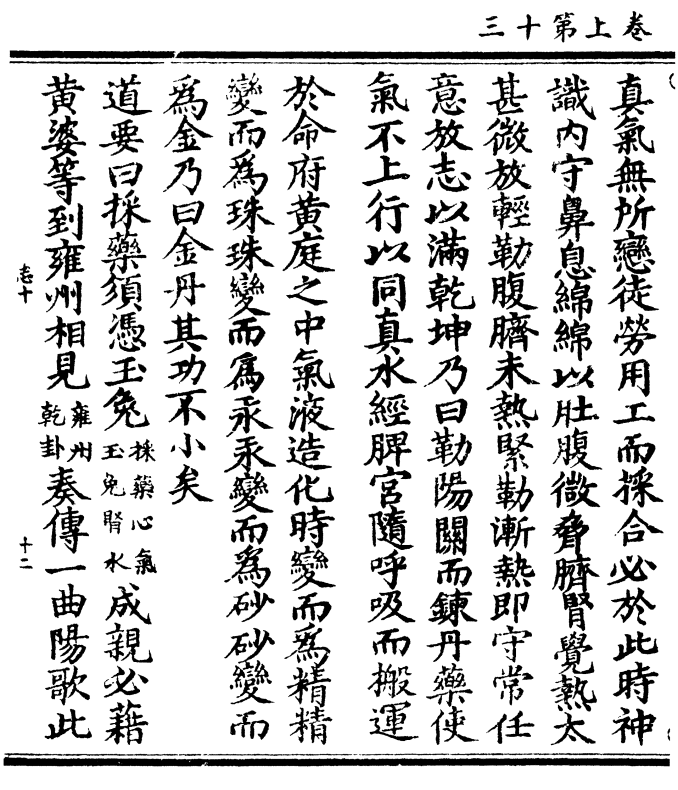 卷上第十三
真氣無所戀徒勞用工而採合必於此時神
識內守鼻息綿綿以肚腹微脅臍腎覺熱太
甚微放輕勒腹臍未熱緊勒漸熱即守常任
意放志以滿乾坤乃曰勒陽關而鍊丹藥使
氣不上行以同真水經脾宮隨呼吸而搬運
於命府黃庭之中氣液造化時變而為精精
變而為珠珠變而為汞汞變而為砂砂變而
為金乃曰金丹其功不小矣
道要曰採藥須憑玉兔採藥心氣玉兔腎水成親必藉
黃婆等到雍州相見雍州乾卦奏傳一曲陽歌此
志十
十二